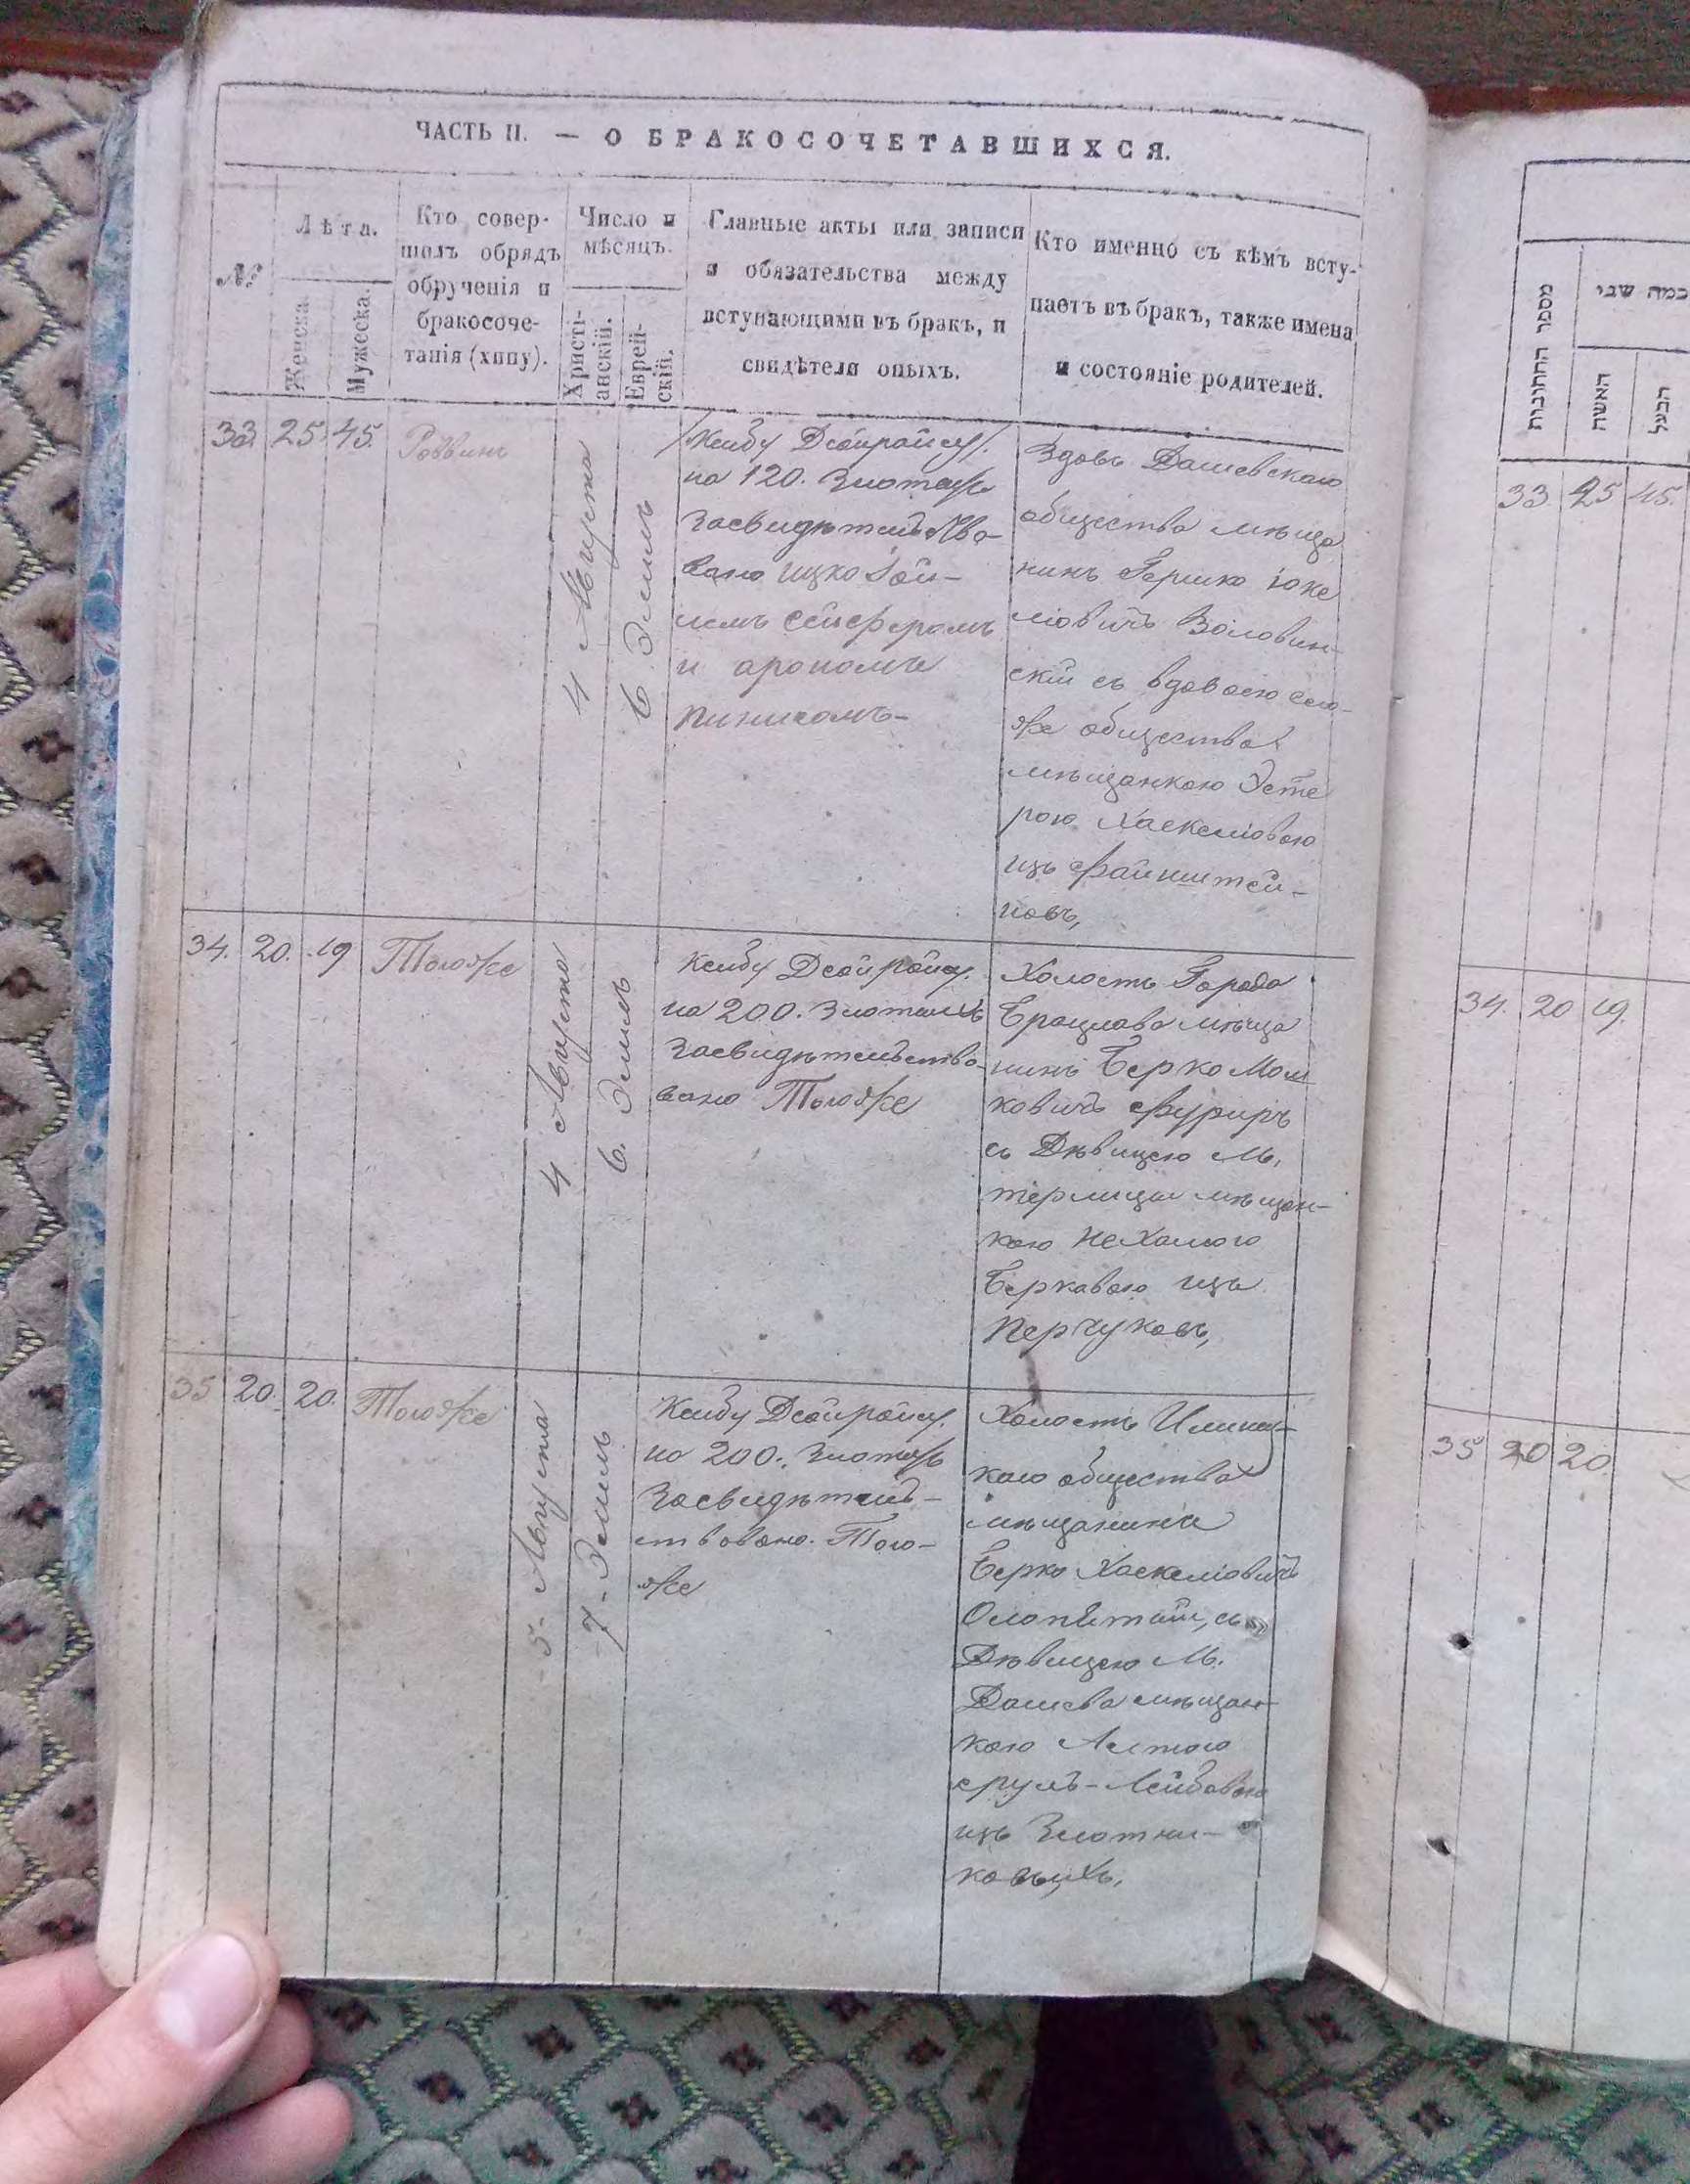 ЧАСТЬ II. — О БРАКОСОЧЕТАВШИХСЯ.
№
Лѣта.
Женска.
Мужеска.
Кто совер-
шилъ обрядъ
обрученія и
бракосоче-
танія (хипу).
Число и
мѣсяцъ.
Христі-
анскій.
Еврей-
скій.
Главные акты или записи
и обязательства между
вступающими въ бракъ, и
свидѣтели оныхъ.
Кто именно съ кѣмъ всту-
паетъ въ бракъ, также имена
и состояніе родителей.
33 25 45.
Раввинъ
4 Августа
6 Элилъ
на 120. Злотыхъ
Засвидѣтельство-
вано Ицко
и арономъ
Здовъ Дашевскаго
общества мѣща
нинъ Гершко Іоке
ліовичъ Воловин-
скій съ вдовою сего-
же общества
мѣщанкою Эсте
рою Хаскеліовою
изъ Файнштей-
новъ,
34. 20. 19
Тогоже
4 Августа
6. Элилъ
на 200. Злотыхъ
Засвидѣтельство-
вано Тогоже
Холостъ Города
Брацлава мѣща
нинъ Берко Мош
ковичъ Фуриръ
съ Дѣвицею М.
терлицы мѣщан-
кою Нехамою
Берковою изъ
Перчуковъ,
35 20. 20.
Тогоже
5 - Августа
7 - Элилъ
на 200. Злотыхъ
Засвидѣтель-
ствовано. Того-
же
Холостъ Илинец-
каго общества
мѣщанинъ
Берко Хаскеліовичъ
съ
Дѣвицею М.
Дашева мѣщан-
кою
сруль-Лейбовою
изъ Злотни-
ковыхъ,
מספר החתונות
כמה שני
האשה
הבעל
33 25 45.
34. 20 19.
35 20 20.